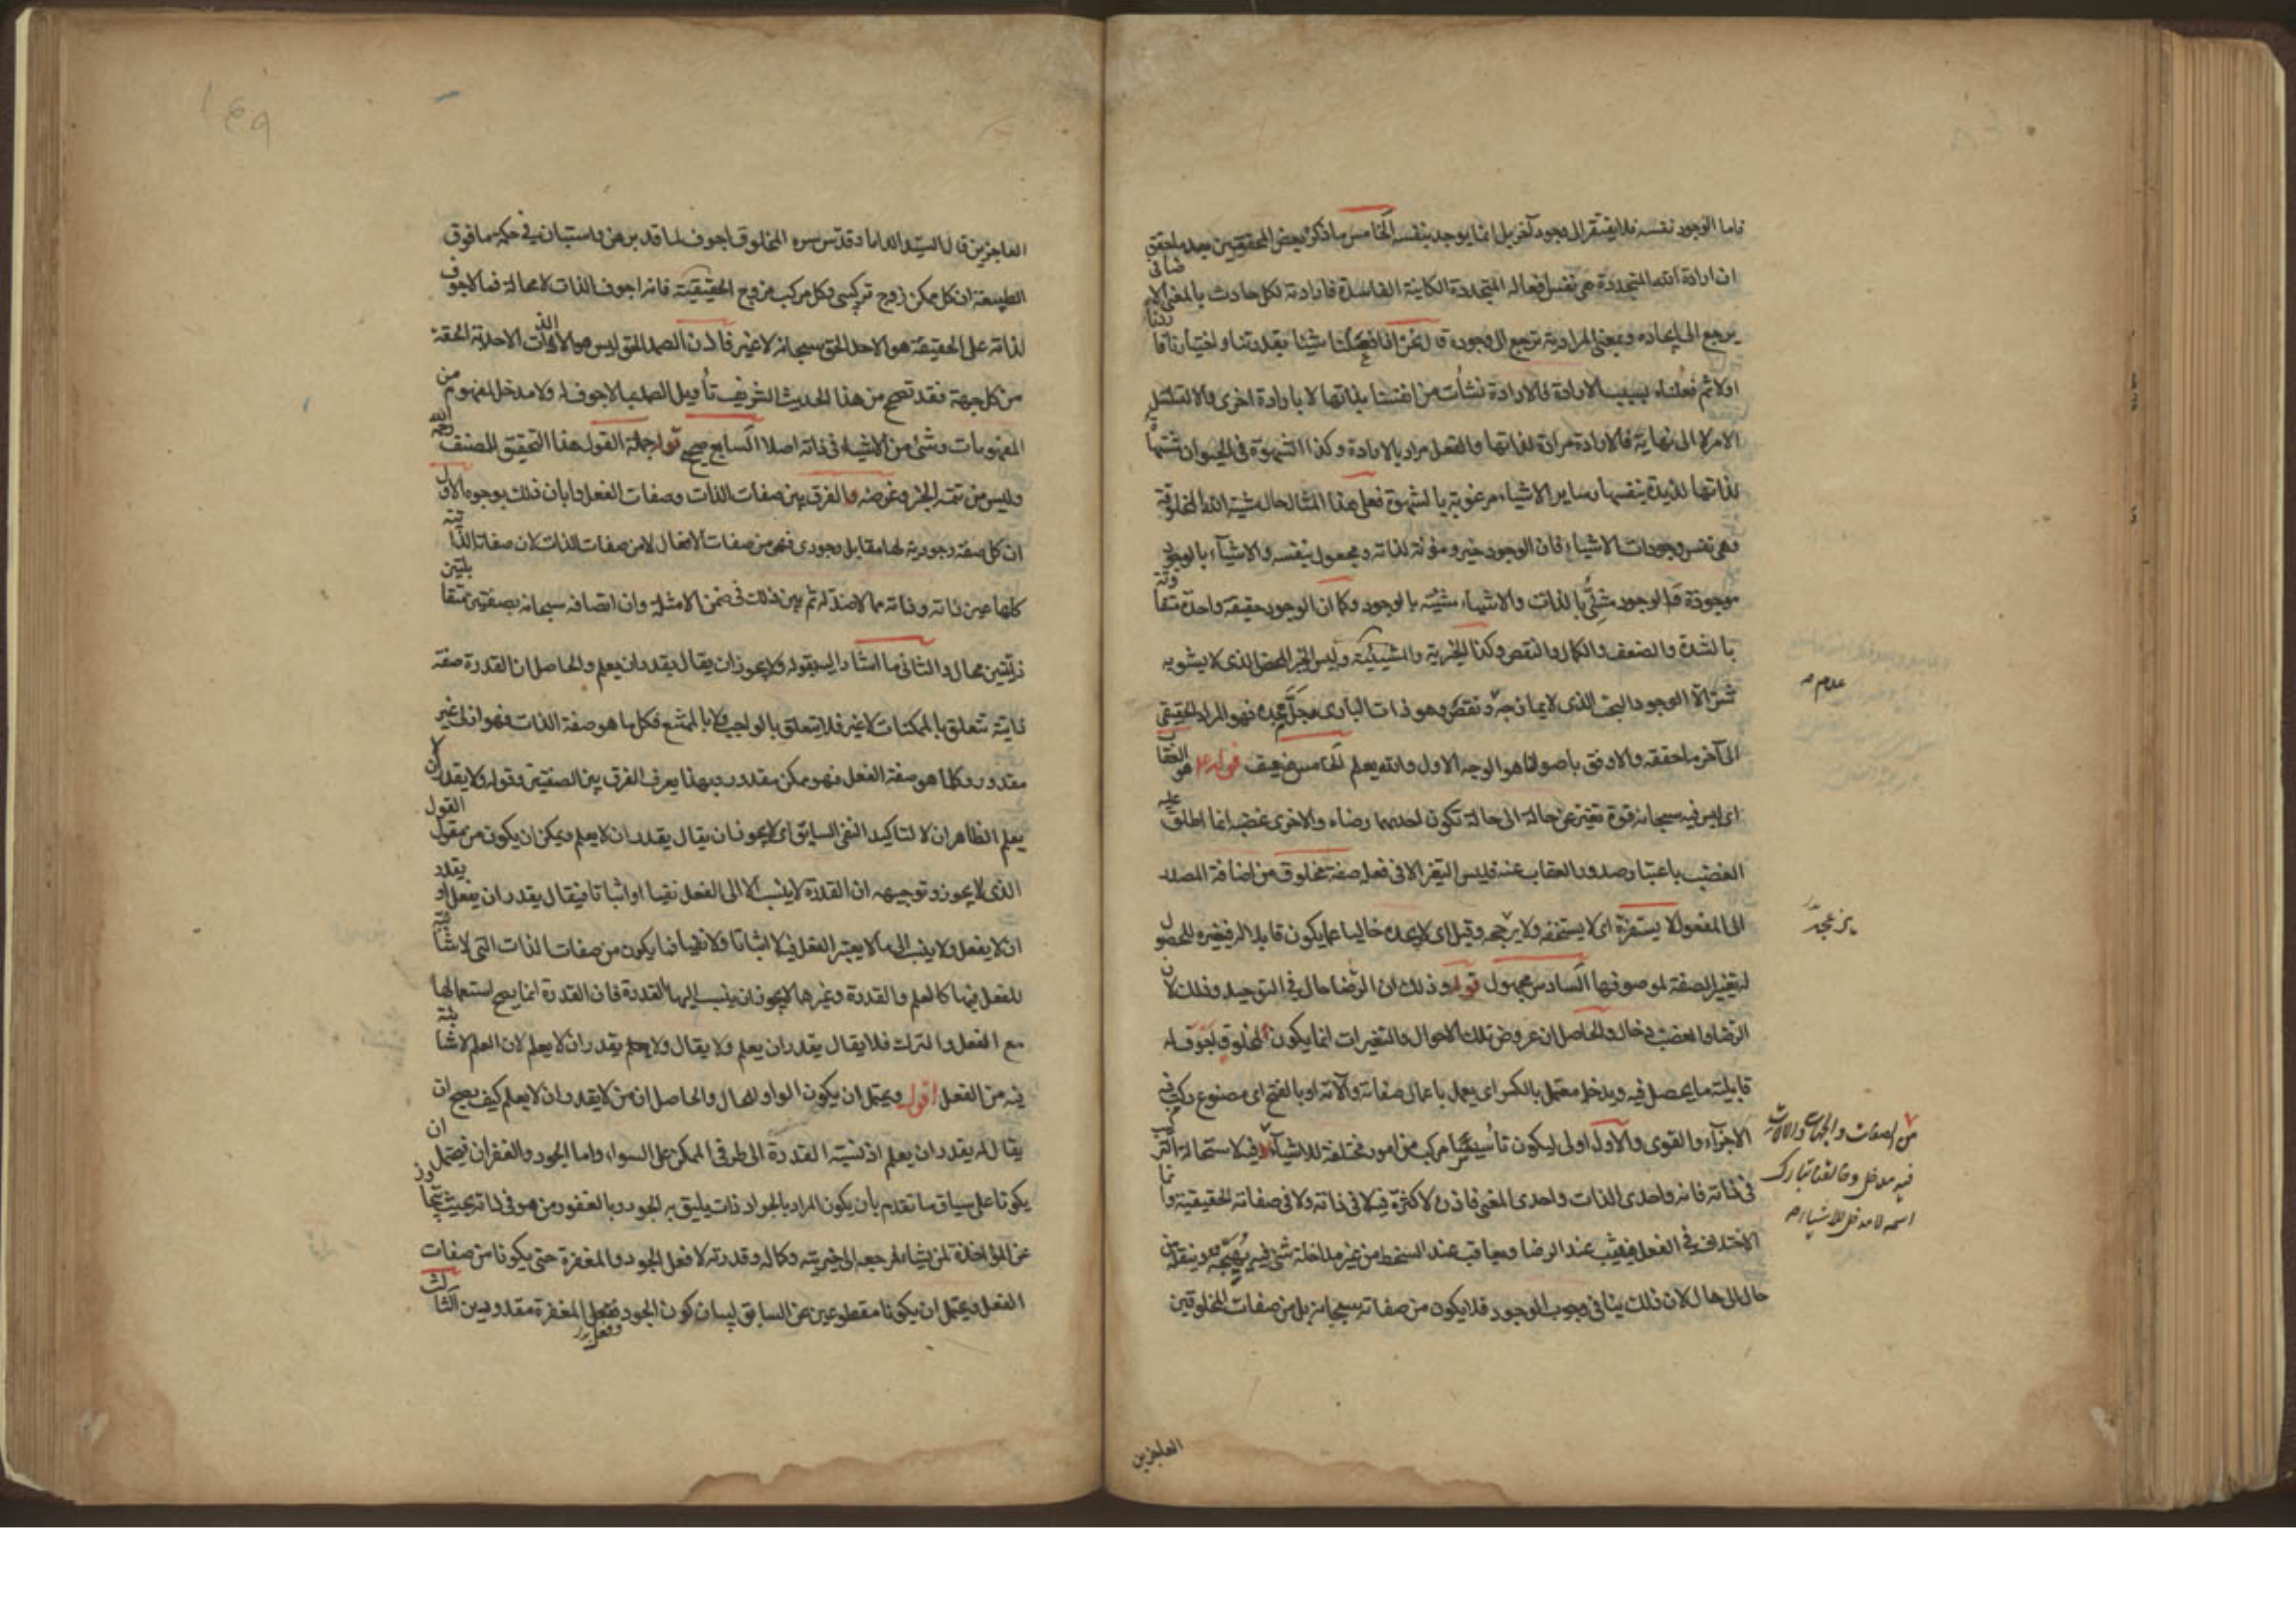 فاما الوجود نفسه فلا يفتقر الى وجود آخر بل انما يوجد بنفسه الخامس ما ذكره بعض المحققين بعد ما حقق
ان ارادة الله المتجددة هى نفس افعاله المتجددة الكاينة الفاسدة فارادته لكل حادث بالمعنى الاضافى
يرجع الى ايجاده وبمعنى المرادية ترجع الى وجوده قال نحن اذا فعلنا شيئا بقدرتنا واختيارنا فاردنا
اولا ثم فعلناه بسبب الارادة فالارادة نشأت من انفسنا بذاتها لا بارادة اخرى والا لتسلسل
الامر لا الى نهاية فالارادة مرادة لذاتها والفعل مراد بالارادة وكذا الشهوة فى الحيوان مشتهاة
لذاتها لذيذة بنفسها وساير الاشياء مرغوبة بالشهوة فعلى هذا المثال حال مشية الله المخلوقة
وهى نفس وجودات الاشياء فان الوجود خير ومؤثر لذاته ومجعول بنفسه والاشياء بالوجود
موجودة فالوجود مشئ بالذات والاشياء مشيئة بالوجود وكما ان الوجود حقيقة واحدة متفاوتة
بالشدة والضعف والكمال والنقص وكذا الخيرية والمشيئية وليس الخير المحض الذى لا يشوبه
شر الا الوجود البحت الذى لا يمازجه ونقص وهو ذات البارى جل مجده فهو المراد الحقيقى
عدم
الى آخر ما حققه والاوفق باصولنا هو الوجه الاول والله يعلم الخامس ضعيف قوله هو العقاب
اى ليس فيه سبحانه قوة تغير عن حالة الى حالة تكون احديهما رضاه والاخرى غضبه انما اطلق عليه
الغضب باعتبار صدور العقاب عنه فليس التغير الا فى فعله صفة مخلوق من اضافة المصدر
الى المفعول لا يستفزه اى لا يستخفه ولا يزعجه وقيل اى لا يجده خاليا عما يكون قابلا له فيغيره للحصول
لتغيير الصفة لموصوفها السادس مجهول قوله وذلك ان الرضا حال فى التوحيد وذلك لان
الرضا والغضب دخال والحاصل ان عروض تلك الاحوال والتغيرات انما يكون لمخلوق اجوف له
قابلية ما يحصل فيه ويدخله معتمل بالكسر اى يعمل باعمال صفاته وآلاته او بالفتح اى مصنوع ركب فيه
الاجزاء والقوى والاول اولى ليكون تأسيسا مركب من امور مختلفة للاشياء فيه لاستحالة التركيب
من الصفات والجهات والآلات
فيه مدخل وخالقنا تبارك
اسمه لا مدخل للاشياء
فى ذاته فانه واحدى الذات واحدى المعنى فاذن لا كثرة فيه لا فى ذاته ولا فى صفاته الحقيقية وانما
الاختلاف فى الفعل فيثيب عند الرضا ويعاقب عند السخط من غير مداخلة شئ فيه يهيجه وينقله من
حال الى حال لان ذلك ينافى وجوب الوجود فلا يكون من صفاته سبحانه بل من صفات المخلوقين
العاجزين
العاجزين قال السيد الداماد قدس سره المخلوق اجوف لما قد برهن واستبان فى حكمة ما فوق
الطبيعة ان كل ممكن زوج تركيبى وكل مركب مزوج الحقيقية فانه اجوف الذات لا محالة فما لا جوف
لذاته على الحقيقة هو الاحد الحق سبحانه لا غير فاذن الصمد الحق ليس هو الا الذات الاحدية الحقة
من كل جهة فقد تصح من هذا الحديث الشريف تأويل الصمد بما لا جوف له ولا مدخل لمفهوم من
المفهومات وشئ من الاشياء فى ذاته اصلا السابع صحيح قوله جملة القول هذا التحقيق للمصنف رحمه الله
وليس من تتمة الخبر وغرضه الفرق بين صفات الذات وصفات الفعل وابان ذلك بوجوه الاول
ان كل صفة وجودية لها مقابل وجودى فهى من صفات الافعال لا من صفات الذات لان صفاته الذاتية
كلها عين ذاته وذاته مما لا ضد له ثم بين ذلك فى ضمن الامثلة وان اتصافه سبحانه بصفتين متقابلتين
ذاتيتين محال والثانى ما اشار اليه بقوله ولا يجوز ان يقال يقدر ان يعلم والحاصل ان القدرة صفة
ذاتية تتعلق بالممكنات لا غير فلا يتعلق بالواجب ولا بالممتنع فكل ما هو صفة الذات فهو ازلى غير
مقدور وكلما هو صفة الفعل فهو ممكن مقدور وبهذا يعرف الفرق بين الصفتين وقوله ولا يقدر ان لا
يعلم الظاهر ان لا لتاكيد النفى السابق اى لا يجوز ان يقال يقدر ان لا يعلم ويمكن ان يكون من مقول القول
الذى لا يجوز وتوجيهه ان القدرة لا ينسب الا الى الفعل نفيا او اثباتا فيقال يقدر ان يفعل او يقدر
ان لا يفعل ولا ينسب الى ما لا يعتبر الفعل فيه لا اثباتا ولا نفيا فما يكون من صفات الذات التى لا شائبة
للفعل فيها كالعلم والقدرة وغيرها لا يجوز ان ينسب اليها القدرة فان القدرة انما يصح استعمالها
مع الفعل والترك فلا يقال يقدر ان يعلم ولا يقال ولا يقدر ان لا يعلم لان العلم لا شائبة
فيه من الفعل اقول ويحتمل ان يكون الواو للحال والحاصل ان من لا يقدر ان لا يعلم كيف يصح ان
يقال له يقدر ان يعلم اذ نسبة القدرة الى طرفى الممكن على السواء واما الجود والغفران فيحتمل ان
يكونا على سياق ما تقدم بان يكون المراد بالجواد ذات يليق به الجود وبالغفور من هو فى ذاته بحيث يتجاوز
عن المؤاخذة لمن يشاء فمرجعه الى خيريته وكماله وقدرته لا فعل الجود والمغفرة حتى يكونا من صفات
الفعل ويحتمل ان يكونا مقطوعين عن السابق لبيان كون الجود وفعل المغفرة مقدورين الثالث
وفعل